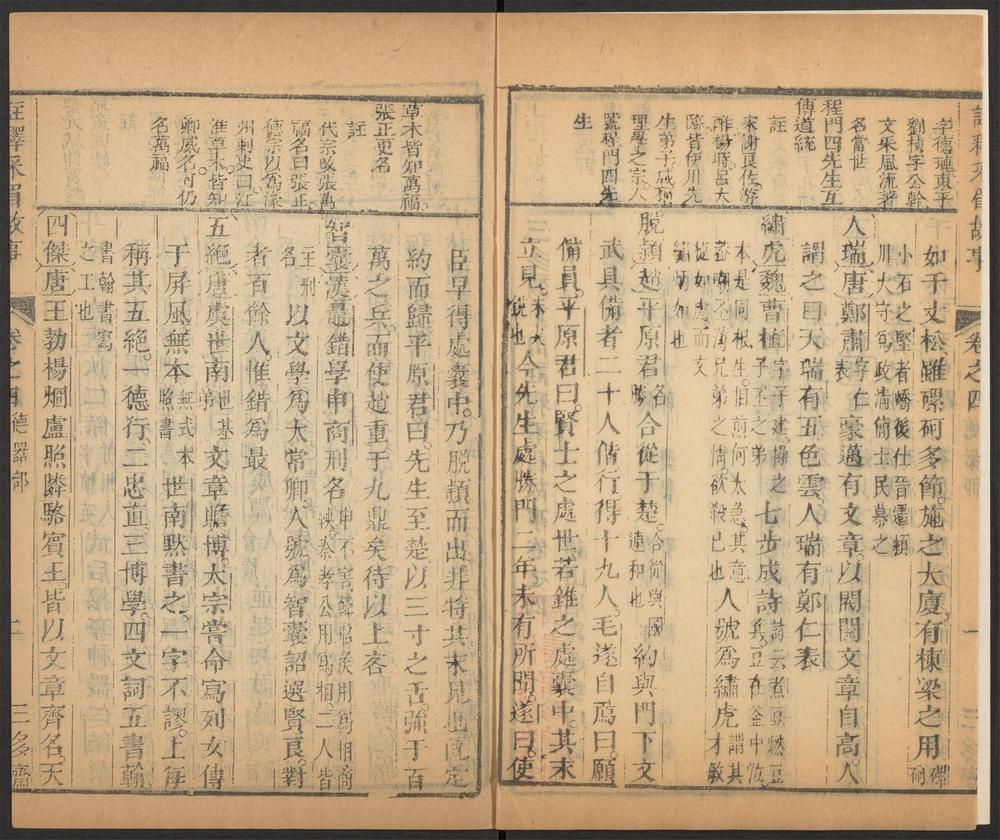 宇德璉東平
劉楨字公幹
文采風流著
名當世
程門四先生互
傳道統
註
宋謝良佐游
酢楊堠呂大
臨皆伊川先
生弟子咸稱
理學之宗人
號程門四先
生
如千丈松雖磥砢多節。施之大廈。有棟梁之用 磥砢
小石之堅者嶠後仕晉遷潁
川大守爲政清簡士民慕之
人瑞唐鄭肅字仁表豪邁有文章。以閥閱文章自高。人
謂之曰天瑞有五色雲人瑞有鄭仁表
繡虎魏曹植字子建操之子丕之弟七步成詩詩云煮豆燃豆萁。豆在釜中泣。
本是同根生。相煎何太急。其意
蓋嘲丕薄兄弟之情欲殺己也人號爲繡虎才謂其才敏
捷如虎而文
炳炳如也
脫穎趙平原君名勝合從于楚。合從與國連和也約與門下文
武具備者二十人偕行得十九人。毛遂自薦曰。願
備員。平原君曰。賢士之處世若錐之處囊中。其末
立見。末火銳也今先生處勝門三年未有所聞。遂曰。使
草木皆如萬福
張正更名
註
代宗改張萬
福名曰張正。
德宗以爲濠
州刺史曰江
淮草木皆知
卿威名可仍
名萬福
臣早得處囊中。乃脫穎而出非特其末見也既定
約而歸平原君曰。先生至楚以三寸之舌。強于百
萬之兵。而使趙重于九鼎矣待以上客
智囊漢鼂錯學申商刑名申不害韓昭侯用爲相商鞅。秦孝公用爲相。二人皆
主刑名以文學爲大常卿人號爲智囊詔選賢良。對
者百餘人。惟錯爲最
五絕唐虞世南世基弟文章贍博。太宗嘗命寫列女傳
于屏風無本無式本照書世南默書之。一字不謬。上每
稱其五絕。一德行。二忠直三博學。四文詞五書翰。
書翰書寫
之工也
四傑唐王勃楊烱盧照隣駱賓王。皆以文章齊名。天
註釋采眉故事
卷之四
德器部
二
三多齋